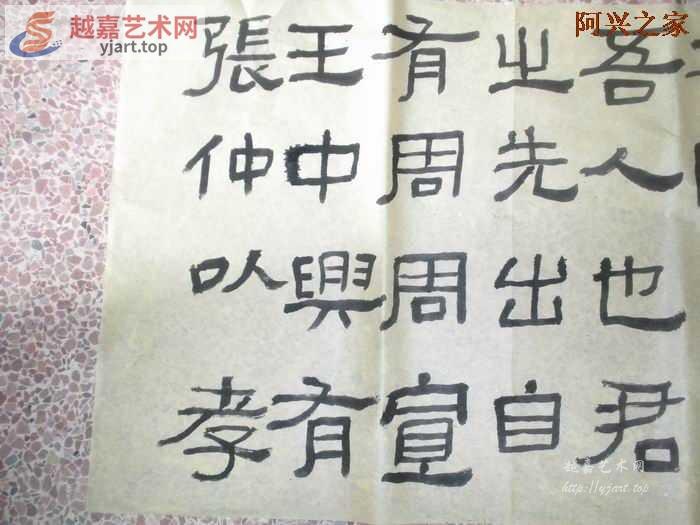 越嘉艺术网
yjart.top
阿兴之家
吾人也君
之先出自
有周周宣
王中興有
張仲以孝
越嘉艺术网
http://yjart.top